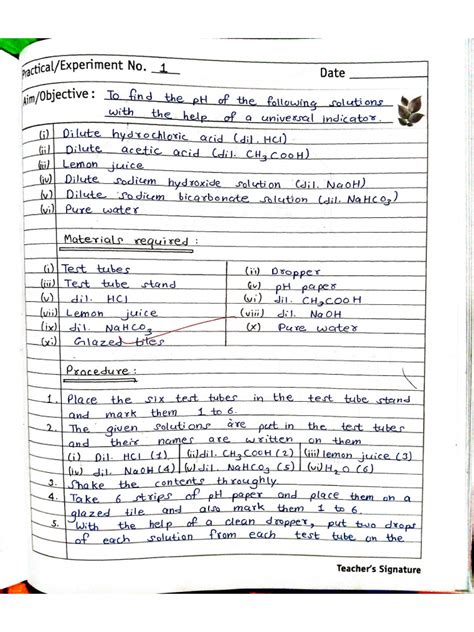 Practical/Experiment No. 1
Date
Aim/Objective: To find the pH of the following solutions
with the help of a universal indicator.
(i) Dilute hydrochloric acid (dil. HCl)
(ii) Dilute acetic acid (dil. CH3COOH)
(iii) Lemon juice
(iv) Dilute sodium hydroxide solution (dil. NaOH)
(v) Dilute sodium bicarbonate solution (dil. NaHCO3)
(vi) Pure water
Materials required:
(i) Test tubes (ii) Dropper
(iii) Test tube stand (iv) pH paper
(v) dil. HCl (vi) dil. CH3COOH
(vii) Lemon juice (viii) dil. NaOH
(ix) dil. NaHCO3 (x) Pure water
(xi) Glazed tiles
Procedure:
1. Place the six test tubes in the test tube stand
and mark them 1 to 6.
2. The given solutions are put in the test tubes
and their names are written on them
(i) Dil. HCl (1) (ii) dil. CH3COOH (2) (iii) lemon juice (3)
(iv) dil. NaOH (4) (v) dil. NaHCO3 (5) (vi) H2O (6)
3. Shake the contents throughly.
4. Take 6 strips of pH paper and place them on a
glazed tile and also mark them 1 to 6.
5. With the help of a clean dropper, put two drops
of each solution from each test tube on the
Teacher's Signature